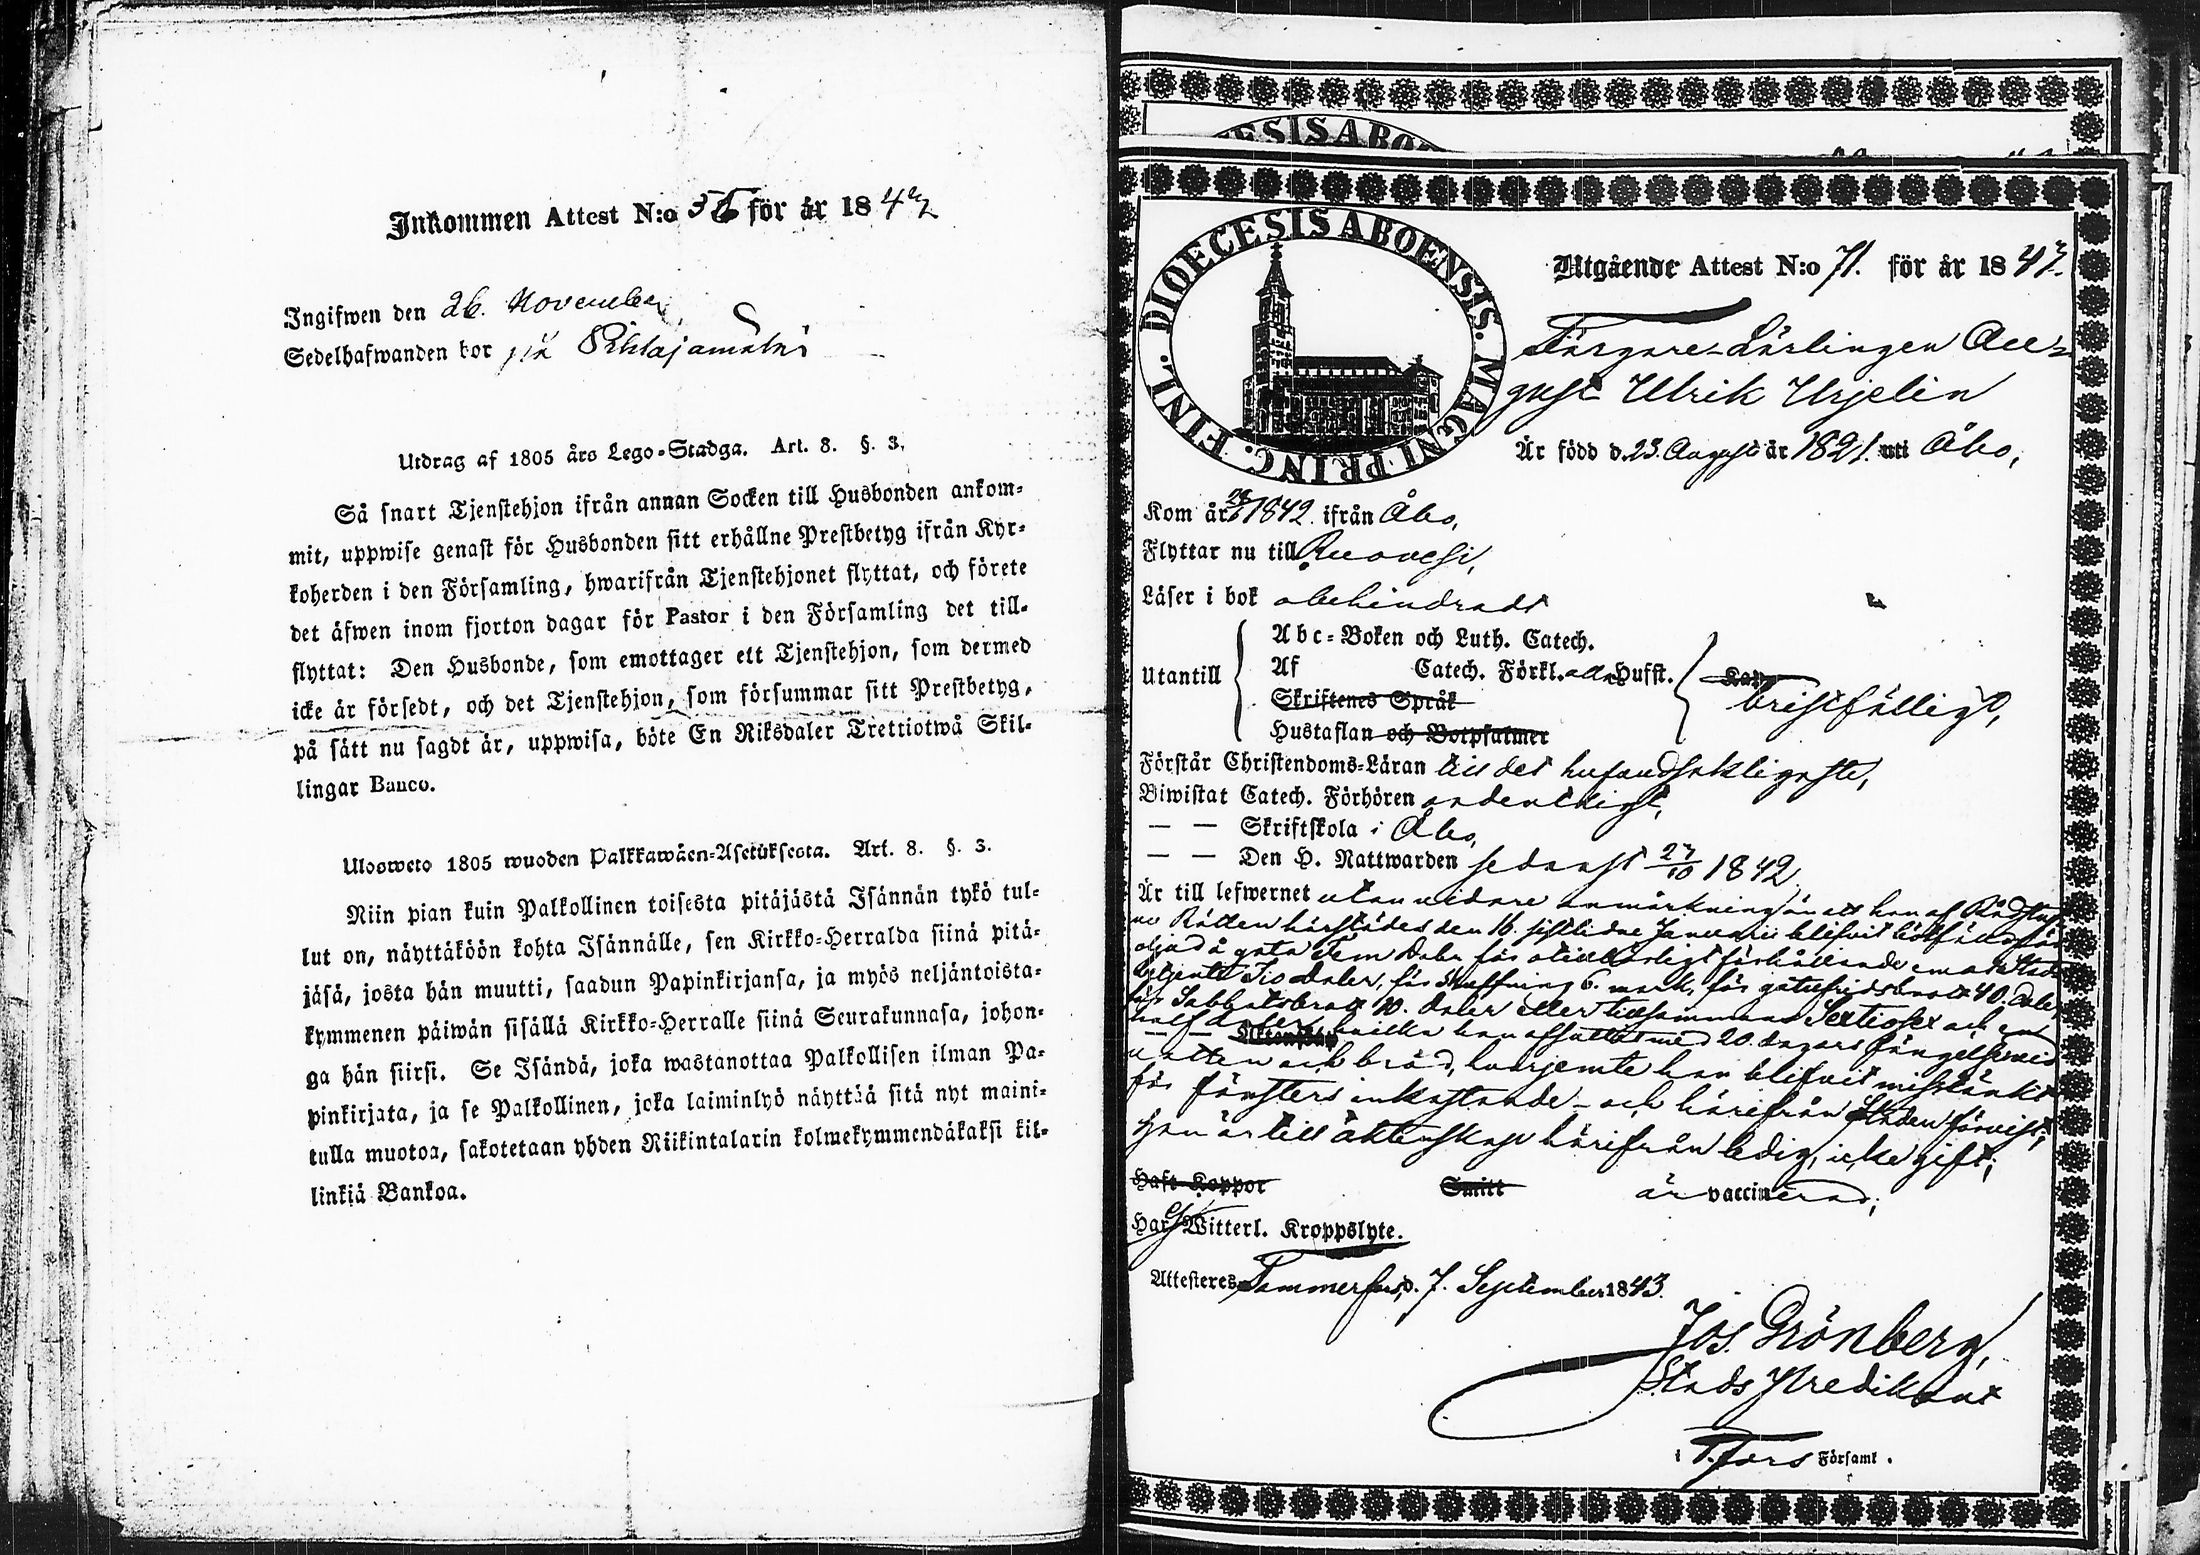 Inkommen Attest N:o 56 för år 1843
Ingifwen den 26. November
Sedelhafwanden bor på Pihlajamäki
Utdrag af 1805 års Lego-Stadga. Art. 8. §. 3.
Så snart Tjenstehjon ifrån annan Socken till Husbonden ankom-
mit, uppwise genast för Husbonden sitt erhållne Prestbetyg ifrån Kyr-
koherden i den Församling, hwarifrån Tjenstehjonet flyttat, och förete
det äfwen inom fjorton dagar för Pastor i den Församling det till-
flyttat: Den Husbonde, som emottager ett Tjenstehjon, som dermed
icke är försedt, och det Tjenstehjon, som försummar sitt Prestbetyg,
på sätt nu sagdt är, uppwisa, böte En Riksdaler Trettiotwå Skil-
lingar Banco.
Ulosweto 1805 wuoden Palkkawäen-Asetuksesta. Art. 8. §. 3.
Niin pian kuin Palkollinen toisesta pitäjästä Isännän tykö tul-
lut on, näyttäköön kohta Isännälle, sen Kirkko-Herralda siinä pitä-
jäsä, josta hän muutti, saadun Papinkirjansa, ja myös neljäntoista-
kymmenen päiwän sisällä Kirkko-Herralle siinä Seurakunnasa, johon-
ga hän siirsi. Se Isändä, joka wastanottaa Palkollisen ilman Pa-
pinkirjata, ja se Palkollinen, joka laiminlyö näyttää sitä nyt maini-
tulla muotoa, sakotetaan yhden Riikintalarin kolmekymmendäkaksi kil-
linkiä Bankoa.
ESIS ABO
DIOECESIS ABOENSIS. MAGNI PRINC. FINL.
Utgående Attest N:o 71. för år 1843.
Färgare-Lärlingen Au-
gust Ulrik Urjelin
Är född d. 23. August år 1821. uti Åbo,
Kom år 1842. ifrån Åbo,
Flyttar nu till Ruovesi,
Läser i bok obehindradt
Utantill
Abc-Boken och Luth. Catech.
Af Catech. Förkl. alla Hufst.
Skriftenes Språk
Hustaflan och Botpsalmer
bristfälligt,
Förstår Christendoms-Läran till det hufvudsakligaste,
Biwistat Catech. Förhören ordentligt,
— — Skriftskola i Åbo,
— — Den H. Nattwarden sedanst 27/10 1842
Är till lefwernet utan vidare anmärkning än att han af Rådstufvu
Rätten härstädes den 16. sistlidne Januarii blifvit bötfälld för
oljud å gata Fem Daler för otillbörligt förhållande emot Stads
betjente Tio daler, för skuffning 6. mark, för gatufridsbrott 40. daler
för Sabbatsbrott 10. daler eller tillsammans Sextiosex och en
half daler, hvilka han afsuttit med 20. dagars fängelse vid
vatten och bröd, hvarjemte han blifvit misstänkt
för fönsters inkastande – och härifrån Staden förvist;
Han är till äktenskap härifrån ledig, icke gift;
Haft Koppor Smitt är vaccinerad;
Har Witterl. Kroppslyte.
Attesteres Tammerfors, d. 7. September 1843.
Jos. Grönberg,
Stads Predikant
i T.fors Församl.